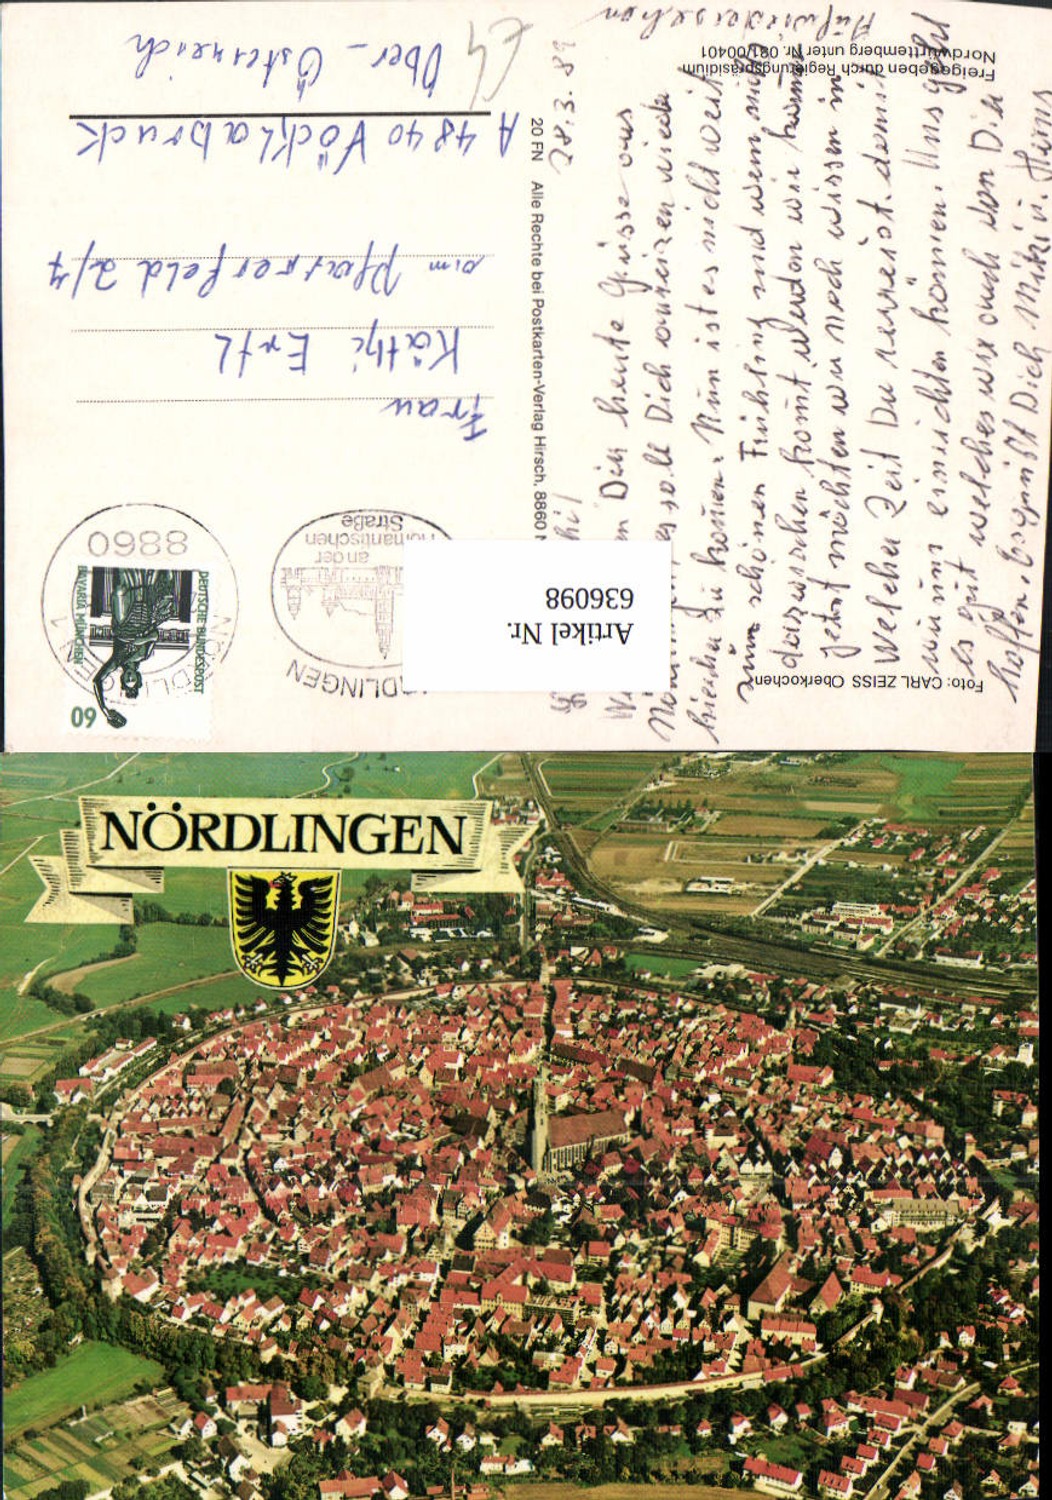 Freigegeben durch Regierungspräsidium
Nordwürttemberg unter Nr. 081/00401
Foto: CARL ZEISS Oberkochen
28.3.89
Dir heute Grüsse aus
soll Dich
zu kommen. Nun ist es nicht weit
zum schönen Frühling und wenn nichts
dazwischen kommt werden wir kommen
jetzt möchten wir noch wissen in
welcher Zeit Du verreist damit
wir uns einrichten können. Uns geht
es gut welches wir auch von Dir
hoffen. Es grüßt Dich Mitzi u. Hans
Aufwiedersehen
20 FN Alle Rechte bei Postkarten-Verlag Hirsch, 8860 N
Artikel Nr.
636098
NÖRDLINGEN
an der
Romantischen
Straße
8860
NÖRDLINGEN 1
60
DEUTSCHE BUNDESPOST
BAVARIA MÜNCHEN
Frau
Käthi Ertl
am Pfarrerfeld 2/7
A 4840 Vöcklabruck
Ober-Österreich
NÖRDLINGEN